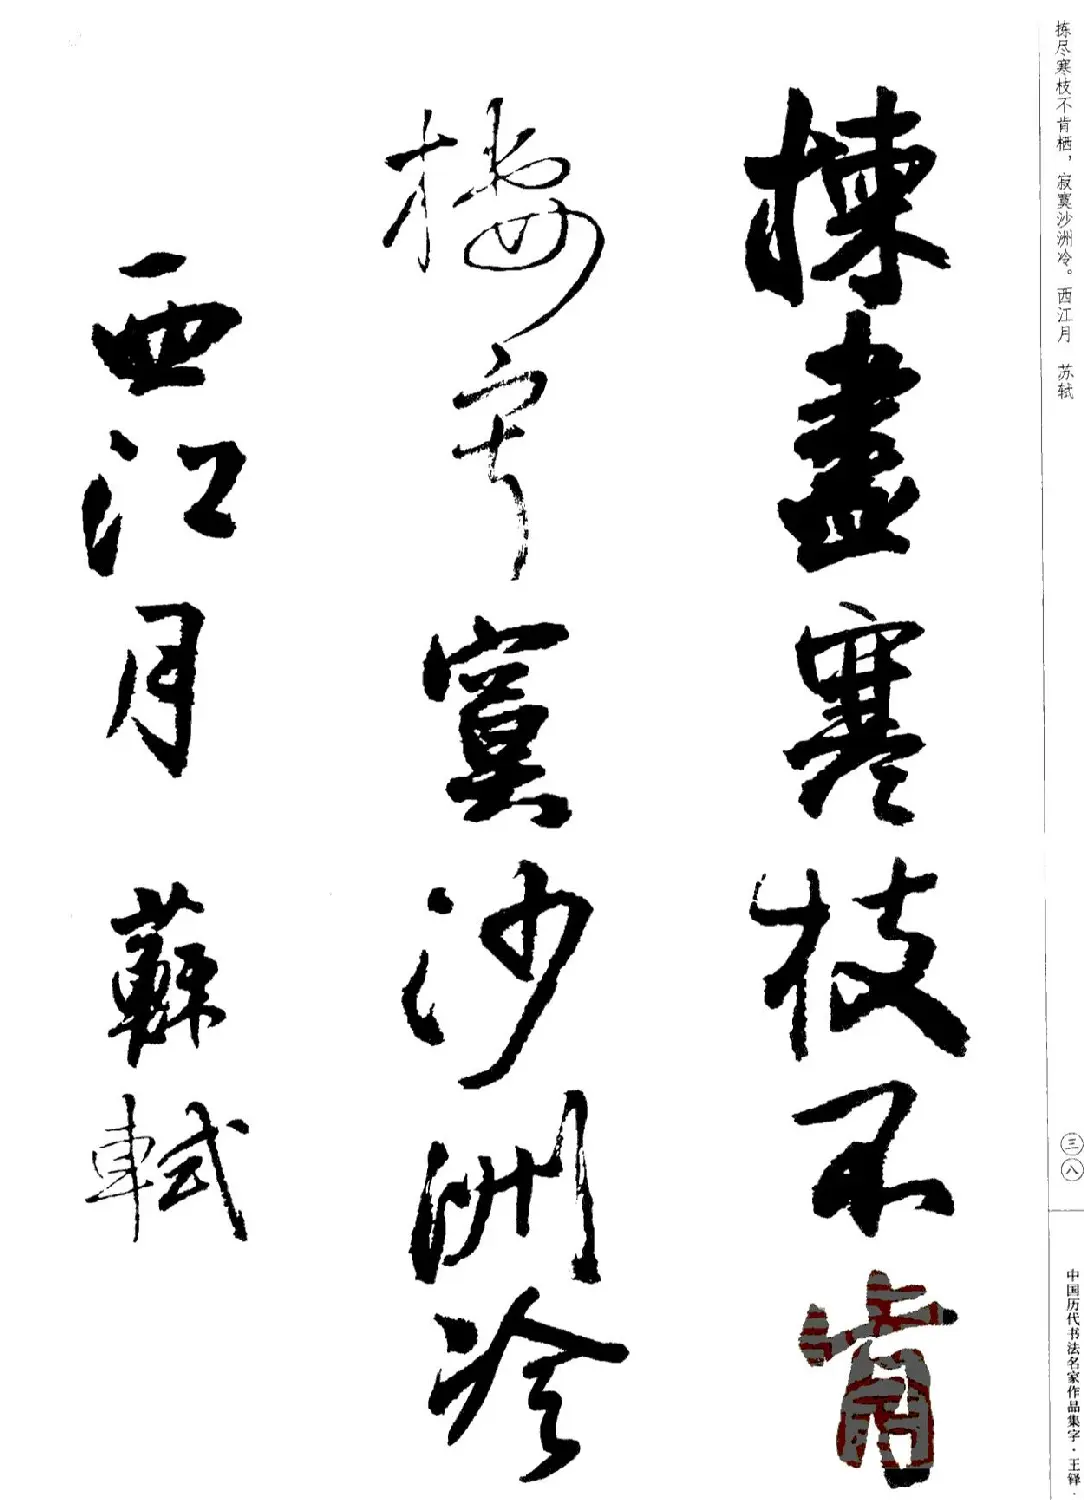 拣尽寒枝不肯栖，寂寞沙洲冷。西江月　苏轼
揀盡寒枝不肯
棲寂寞沙洲冷
西江月 蘇軾
三八
中国历代书法名家作品集字·王铎·